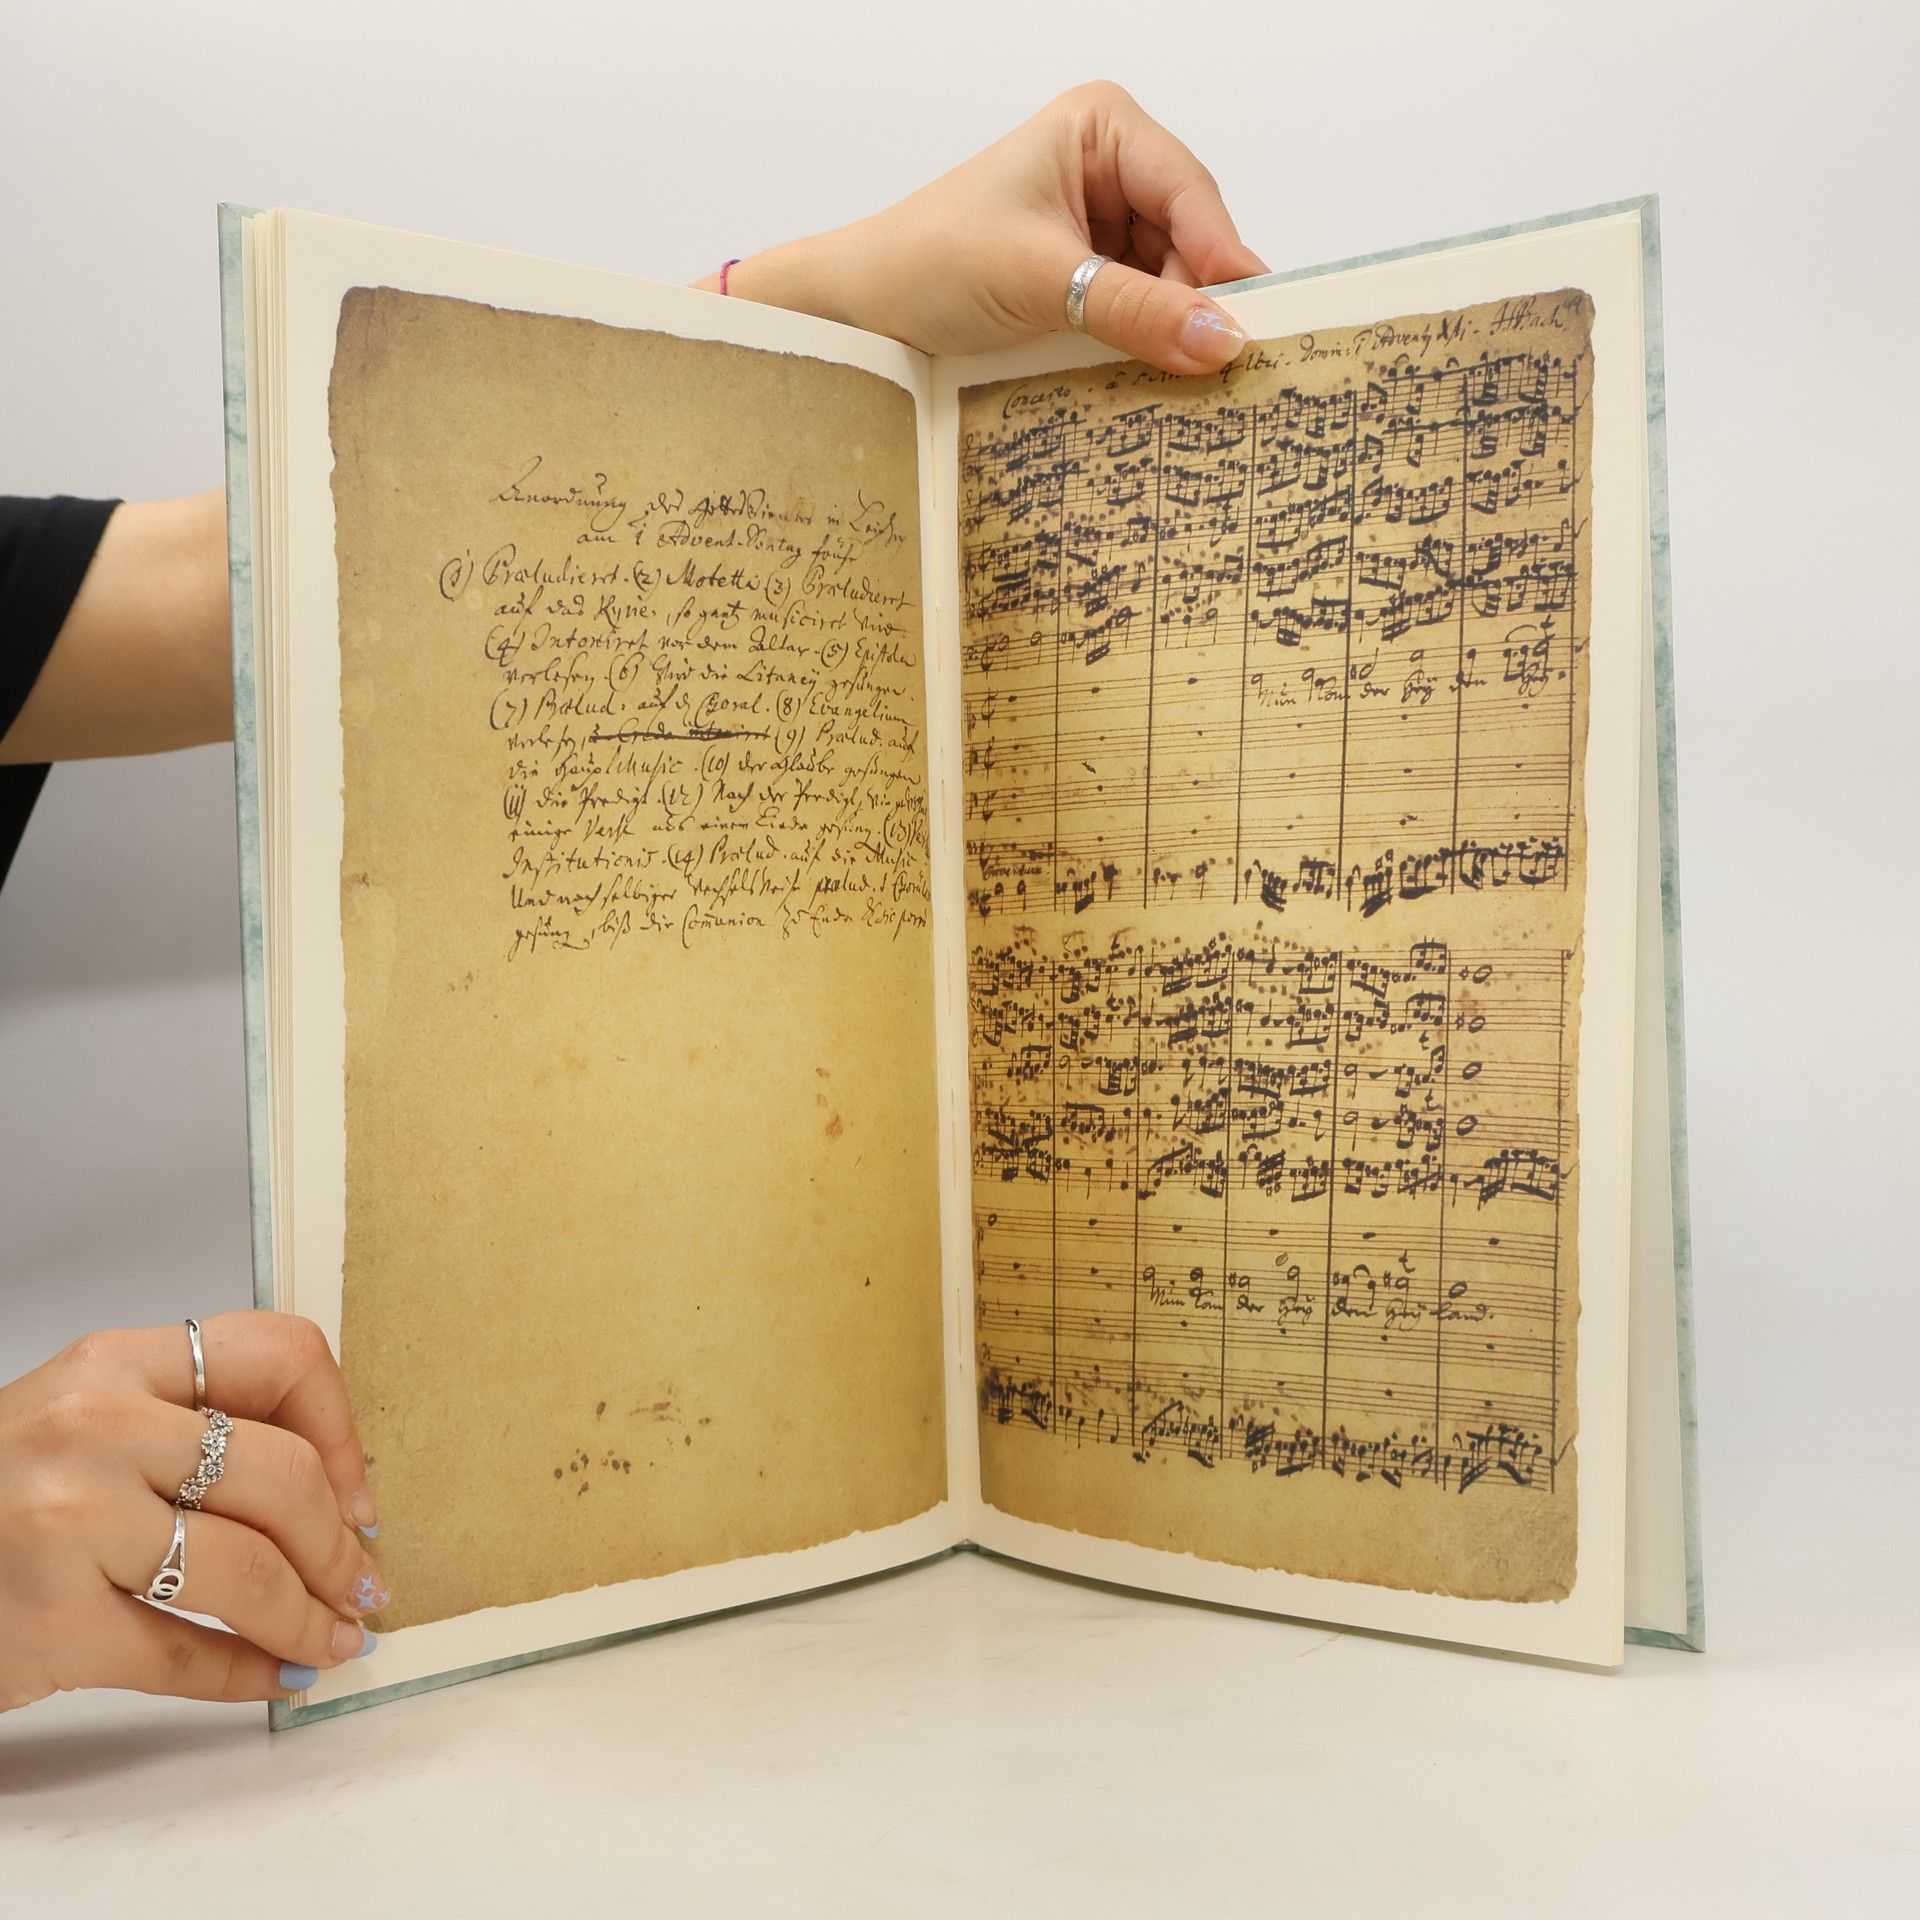 Anordnung des GottesDienstes in Leipzig
am 1 Advent-Sontag frühe
(1) Præludieret. (2) Motetta (3) Præludieret
auf das Kyrie, so gantz musiciret wird.
(4) Intoniret vor dem Altar. (5) Epistola
verlesen. (6) Wird die Litaney gesungen.
(7) Prælud: auf den Choral. (8) Evangelium
verlesen, u. Credo intoniret (9) Prælud. auf
die HauptMusic. (10) der Glaube gesungen
(11) die Predigt. (12) Nach der Predigt, wie gewöhnl
einige Verse aus einem Liede gesung. (13) Verb
Institutionis. (14) Prælud. auf die Music
Und nach selbiger wechselsweise prælud. v Choräle
gesung, biß die Com̄union zu Ende & sic porro
Concerto. â 4 Voci. Domin: 1 Adventg Xsti. JSBach.
Nun kom̄ der Hey den Hey-
Ouverture.
Nun kom̄ der Hey den Hey land.